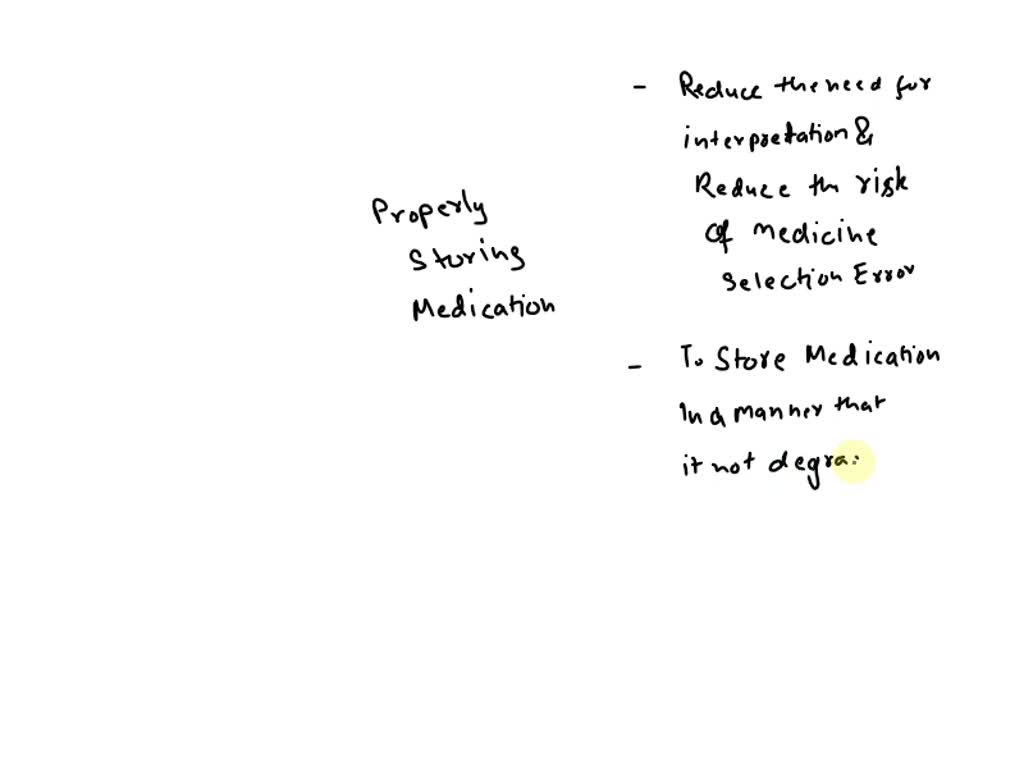 Properly
Storing
Medication
- Reduce the need for
interpretation &
Reduce th risk
of medicine
selection Error
- To Store Medication
In a manner that
it not degra